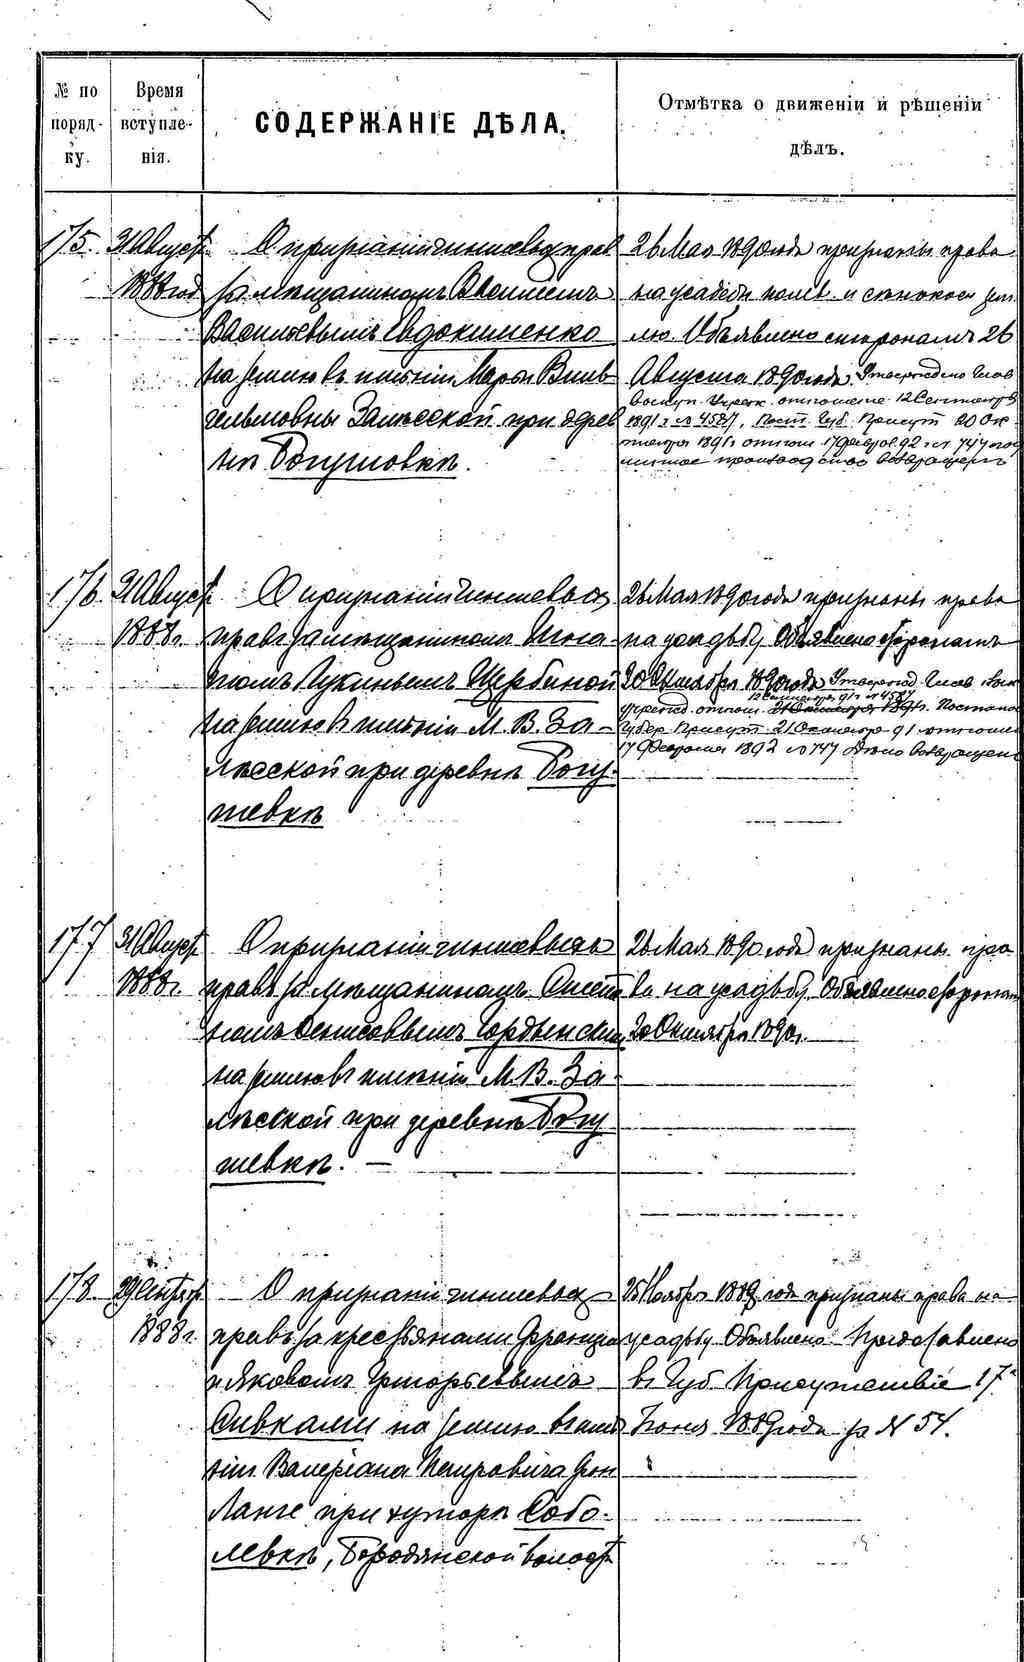 № по порядку.
Время вступленія.
СОДЕРЖАНІЕ ДѢЛА.
Отмѣтка о движеніи и рѣшеніи дѣлъ.
175.
31 Август.
1888 год
О признаніи чиншевых прав
за мѣщанином Василіем
Васильевымъ Евдокименко
на землю въ имѣніи Маріи Виль
гельмовны Залѣсской при дерев
нѣ Богушовкѣ.
26 Мая 1890 года признаны права
на усадебн. полев. и сѣнокосн зем
лю. Объявлено сторонамъ 26
Августа 1890 года. Утверждено Глав
отношение 12 Сентября
1891 г № 4587, Пост. Губ. Присут 20 Ок
тября 1891 г отнош 17 Феврал. 92 г № 747
производство возвращено
176.
31 Август
1888 г.
О признаніи чиншевых
правъ за мѣщанином Игна
тіомъ Лукинымъ Щербиной
на землю въ имѣніи М. В. За-
лѣсской при деревнѣ Богу-
шевкѣ
26 Мая 1890 года признаны права
на усадьбу Объявлено сторонамъ
20 Октября 1890 года Утвержд. Глав
12 Сентября 91 г № 4587
отнош. 1891 г. Постано
Губер. Присут. 21 Октября 91 отнош
17 Февраля 1892 № 747 Дѣло возвращено
177
31 Август
1888 г.
О признаніи чиншевыхъ
правъ за мѣщанином
Денисовымъ
на землю въ имѣніи М. В. За-
лѣсской при деревнѣ Богу
шевкѣ. —
26 Мая 1890 года признаны пра
ва на усадьбу Объявлено сторонам
20 Октября 1890 г.
178.
29 Сентябр
1888 г.
О признаніи чиншевых
правъ за крестьянами Францом
и Яковомъ Григорьевыми
Сивками на землю въ имѣ
ніи Валеріана Петровича фон
Ланге при хуторѣ Собо-
левкѣ, Бородянской волости
25 Ноября 1889 года признаны права на
усадьбу Объявлено. Представлено
въ Губ. Присутствіе 17
Іюня 1889 года за № 54.